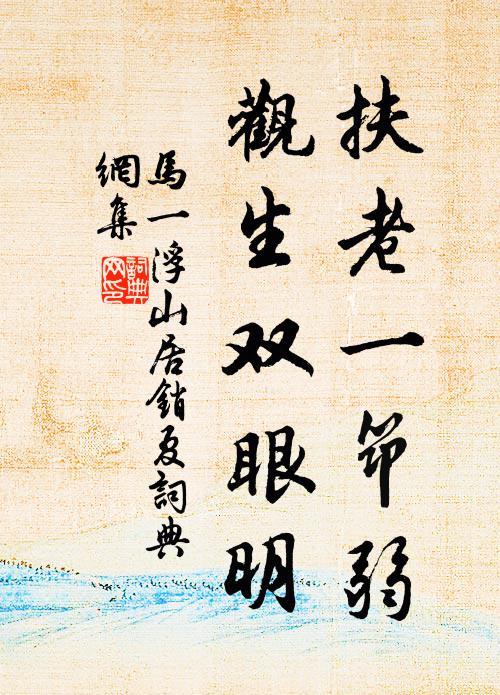 扶老一笻弱
觀生双眼明
馬一浮山居銷夏詞典
網集
詞典网印